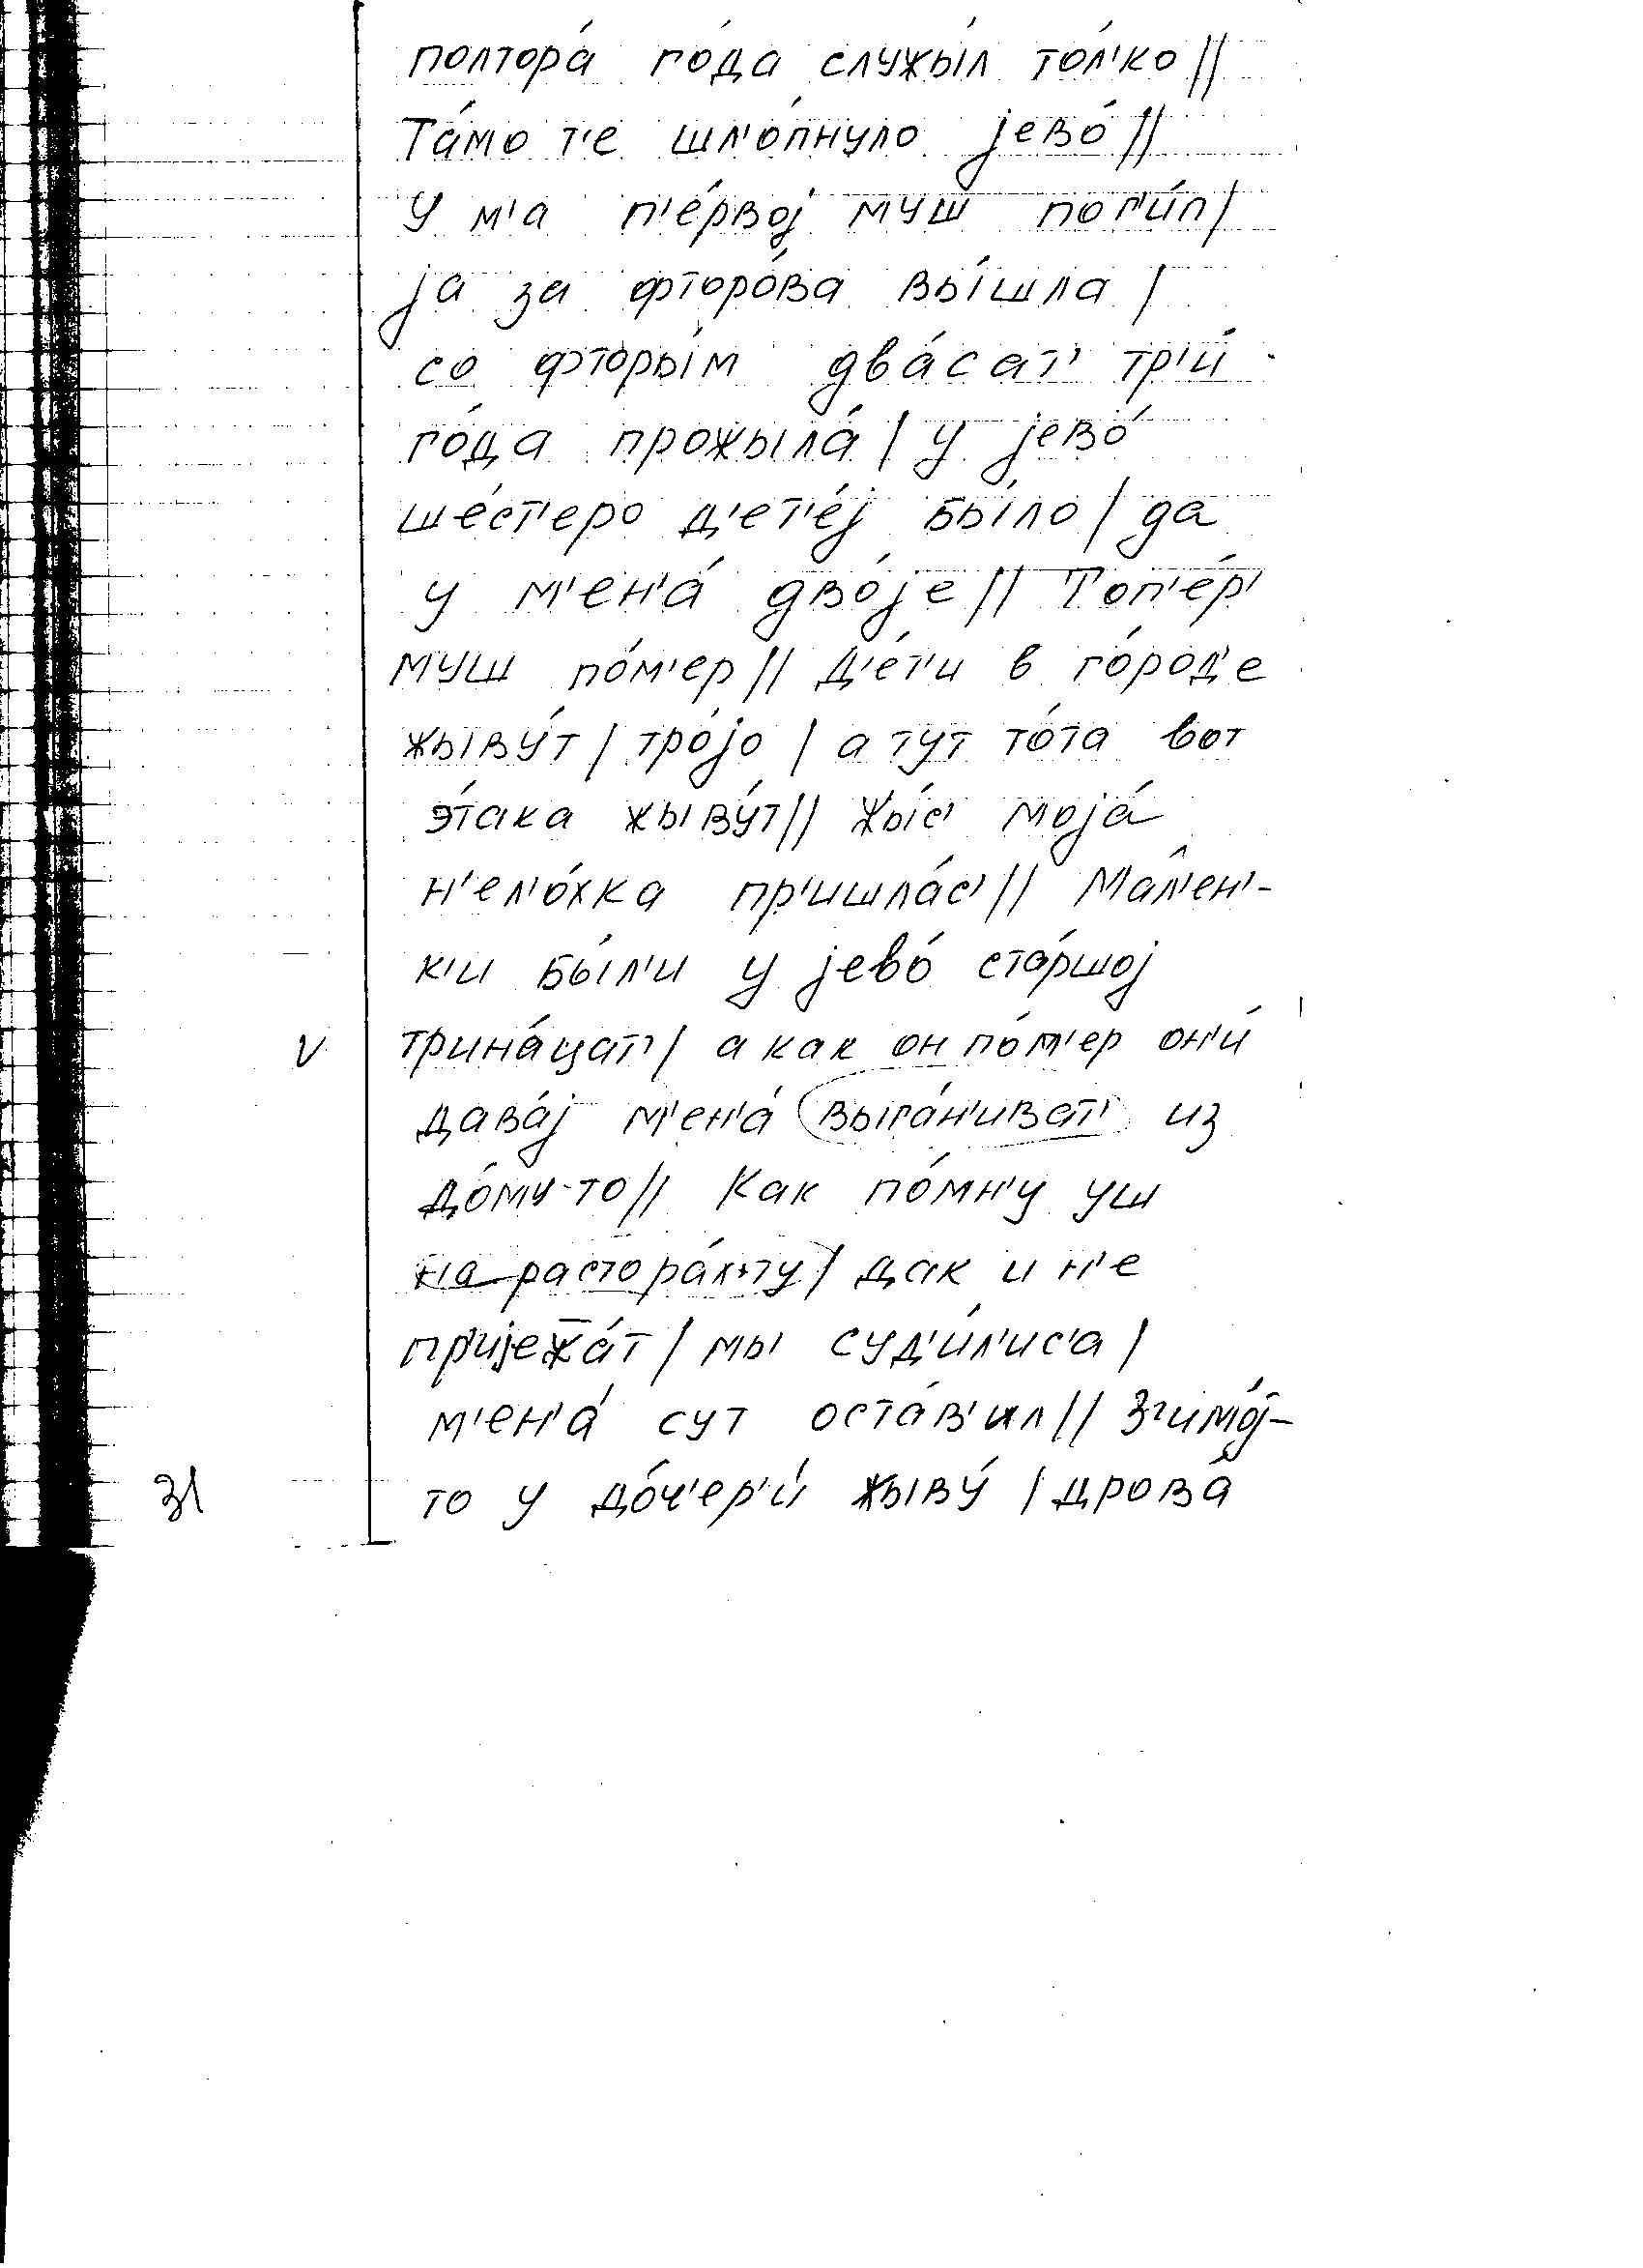 полтора́ го́да служы́л то́л'ко //
Та́мо т'е шл'о́пнуло јево́ //
У м'а п'е́рвој муш пог'и́п /
ја за фторо́ва вы́шла /
со фторы́м два́сат' тр'и́
го́да прожыла́ / у јево́
ше́ст'еро д'ет'е́ј бы́ло / да
у м'ен'а́ дво́је // Топ'е́р'
муш по́м'ер // Д'е́т'и в го́род'е
жыву́т / тро́јо / а тут то́та вот
э́така жыву́т // Жы́с' моја́
н'ел'о́хка пр'ишла́с' // Мал'ен'-
к'и бы́л'и у јево́ ста́ршој
V трина́цат' / а как он по́м'ер он'и́
дава́ј м'ен'а́ выга́н'иват' из
до́му-то // Как по́мн'у уш
на растора́н'ту / дак и н'е
пр'ијежа́т / мы суд'и́л'ис'а /
м'ен'а́ сут оста́в'ил // З'имо́ј-
31 то у до́ч'ер'и́ жыву́ / дрова́